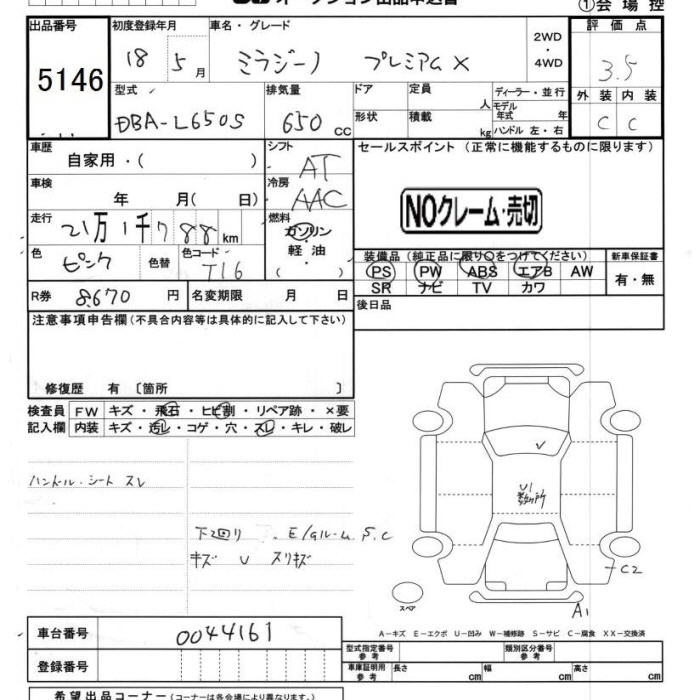 オークション出品申込書
①会場控
出品番号 初度登録年月 車名・グレード 2WD・4WD 評価点
5146 18 5月 ミラジーノ プレミアムX 3.5
型式 排気量 ドア 定員 人 ディーラー・並行 外装 内装
DBA-L650S 650 CC 形状 積載 kg モデル年式 年 C C
ハンドル 左・右
車歴 自家用・( ) シフト AT セールスポイント (正常に機能するものに限ります)
車検 年 月( 日) 冷房 AAC
NOクレーム・売切
走行 21万1千788km 燃料 ガソリン
軽油・( )
色 ピンク 色替 色コード T16
装備品(純正品に限り○をつけてください) 新車保証書
PS PW ABS エアB AW 有・無
SR ナビ TV カワ
R券 8,670円 名変期限 月 日 後日品
注意事項申告欄(不具合内容等は具体的に記入して下さい)
修復歴 有 〔箇所 〕
検査員 FW キズ・飛石・ヒビ割・リペア跡・×要
記入欄 内装 キズ・汚レ・コゲ・穴・スレ・キレ・破レ
ハンドル・シート スレ
下回り E/gルーム S.C
キズ U スリキズ
V
U1
数ヶ所
C2
スペア
A1
A-キズ E-エクボ U-凹み W-補修跡 S-サビ C-腐食 XX-交換済
車台番号 0044161
型式指定番号 参考 類別区分番号 参考
登録番号
車庫証明用 参考 長さ cm 幅 cm 高さ cm
希望出品コーナー(コーナーは各会場により異なります。)